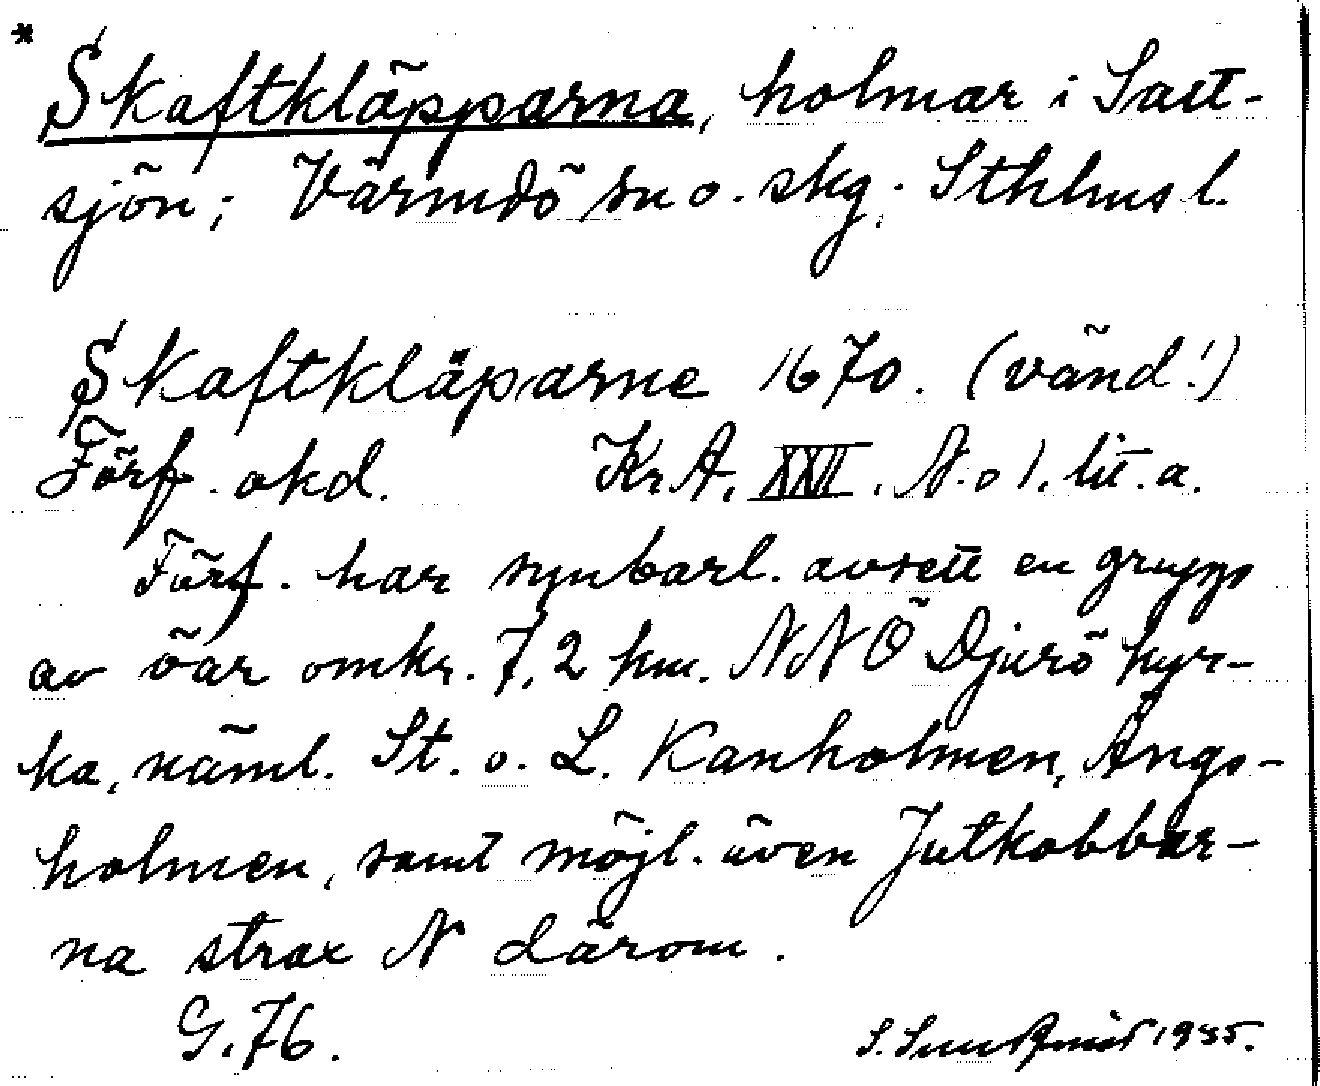 * Skaftkläpparna, holmar i Salt-
sjön; Värmdö sn o. skg; Sthlms l.
Skaftkläparne 1670. (vänd!)
Förf. okd. Kr A. XXII. N:o 1. lit. a.
Förf. har synbarl. avsett en grupp
av öar omkr. 7,2 km. NNÖ Djurö kyr-
ka, näml. St. o. L. Kanholmen, Ängs-
holmen, samt möjl. även Jutkobbar-
na strax N därom.
G. 76.
S. 1935.